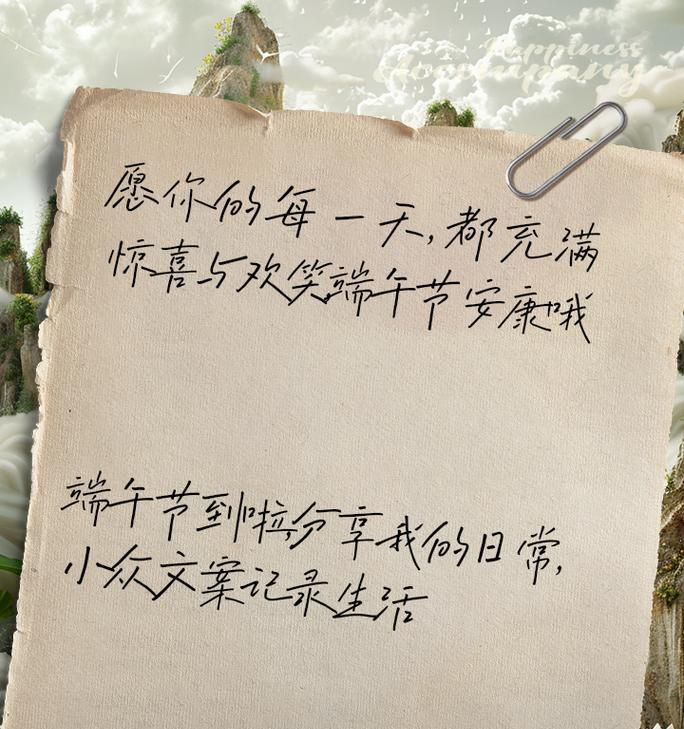 Happiness
Accompany
愿你的每一天,都充满
惊喜与欢笑,端午节安康哦
端午节到啦,分享我的日常,
小众文案记录生活